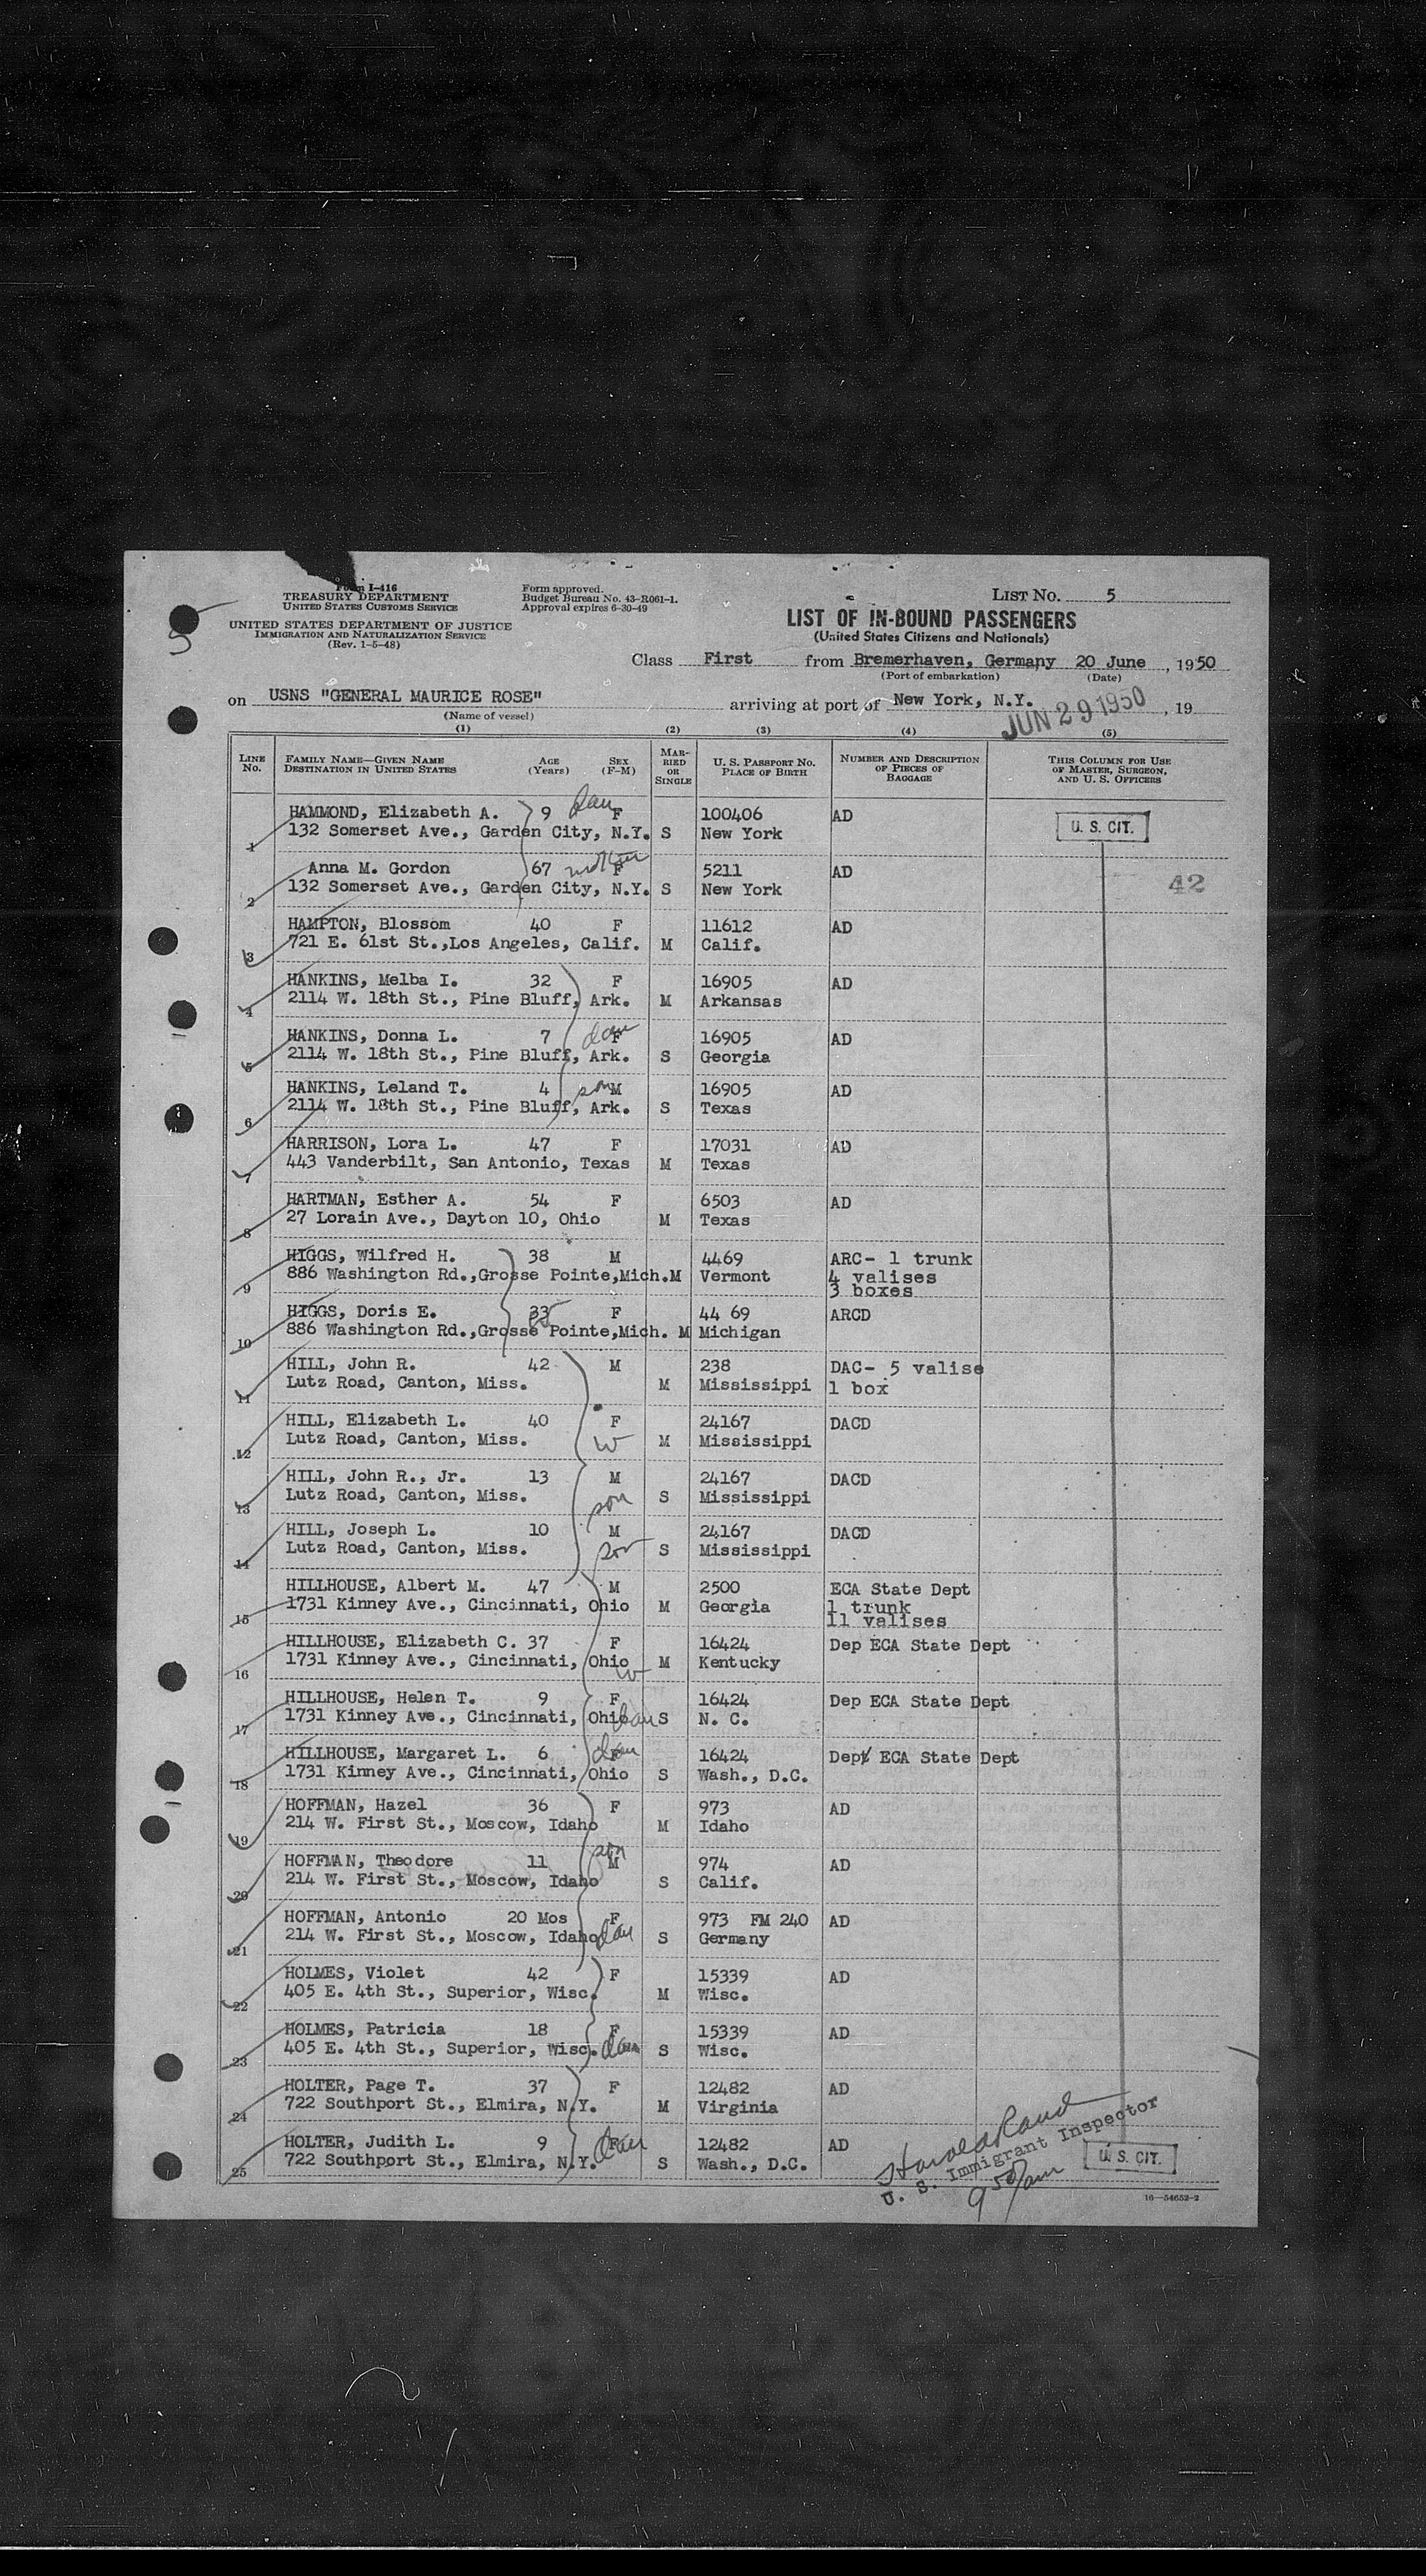 Form I-416
TREASURY DEPARTMENT
UNITED STATES CUSTOMS SERVICE
UNITED STATES DEPARTMENT OF JUSTICE
IMMIGRATION AND NATURALIZATION SERVICE
(Rev. 1-5-48)
Form approved.
Budget Bureau No. 43-R061-1.
Approval expires 6-30-49
LIST NO. 5
LIST OF IN-BOUND PASSENGERS
(United States Citizens and Nationals)
5
Class First from Bremerhaven, Germany 20 June, 1950
(Port of embarkation) (Date)
on USNS "GENERAL MAURICE ROSE" arriving at port of New York, N.Y., 19
(Name of vessel)
JUN 29 1950
(1) (2) (3) (4) (5)
LINE NO. FAMILY NAME—GIVEN NAME DESTINATION IN UNITED STATES AGE (Years) SEX (F-M) MARRIED OR SINGLE U. S. PASSPORT NO. PLACE OF BIRTH NUMBER AND DESCRIPTION OF PIECES OF BAGGAGE THIS COLUMN FOR USE OF MASTER, SURGEON, AND U. S. OFFICERS
HAMMOND, Elizabeth A. 9 dau F 100406 AD
1 132 Somerset Ave., Garden City, N.Y. S New York U. S. CIT.
Anna M. Gordon 67 mother F 5211 AD
2 132 Somerset Ave., Garden City, N.Y. S New York 42
HAMPTON, Blossom 40 F 11612 AD
3 721 E. 61st St.,Los Angeles, Calif. M Calif.
HANKINS, Melba I. 32 F 16905 AD
4 2114 W. 18th St., Pine Bluff, Ark. M Arkansas
HANKINS, Donna L. 7 dau F 16905 AD
5 2114 W. 18th St., Pine Bluff, Ark. S Georgia
HANKINS, Leland T. 4 son M 16905 AD
6 2114 W. 18th St., Pine Bluff, Ark. S Texas
HARRISON, Lora L. 47 F 17031 AD
7 443 Vanderbilt, San Antonio, Texas M Texas
HARTMAN, Esther A. 54 F 6503 AD
8 27 Lorain Ave., Dayton 10, Ohio M Texas
HIGGS, Wilfred H. 38 M 4469 ARC- 1 trunk
9 886 Washington Rd.,Grosse Pointe,Mich. M Vermont 4 valises
3 boxes
HIGGS, Doris E. F 44 69 ARCD
10 886 Washington Rd.,Grosse Pointe,Mich. M Michigan
HILL, John R. 42 M 238 DAC- 5 valise
11 Lutz Road, Canton, Miss. M Mississippi 1 box
HILL, Elizabeth L. 40 F 24167 DACD
12 Lutz Road, Canton, Miss. w M Mississippi
HILL, John R., Jr. 13 M 24167 DACD
13 Lutz Road, Canton, Miss. son S Mississippi
HILL, Joseph L. 10 M 24167 DACD
14 Lutz Road, Canton, Miss. son S Mississippi
HILLHOUSE, Albert M. 47 M 2500 ECA State Dept
15 1731 Kinney Ave., Cincinnati, Ohio M Georgia 1 trunk
11 valises
HILLHOUSE, Elizabeth C. 37 F 16424 Dep ECA State Dept
16 1731 Kinney Ave., Cincinnati, Ohio w M Kentucky
HILLHOUSE, Helen T. 9 F 16424 Dep ECA State Dept
17 1731 Kinney Ave., Cincinnati, Ohio dau S N. C.
HILLHOUSE, Margaret L. 6 dau F 16424 Dept ECA State Dept
18 1731 Kinney Ave., Cincinnati, Ohio S Wash., D.C.
HOFFMAN, Hazel 36 F 973 AD
19 214 W. First St., Moscow, Idaho M Idaho
HOFFMAN, Theodore 11 son M 974 AD
20 214 W. First St., Moscow, Idaho S Calif.
HOFFMAN, Antonio 20 Mos F 973 FM 240 AD
21 214 W. First St., Moscow, Idaho dau S Germany
HOLMES, Violet 42 F 15339 AD
22 405 E. 4th St., Superior, Wisc. M Wisc.
HOLMES, Patricia 18 F 15339 AD
23 405 E. 4th St., Superior, Wisc. dau S Wisc.
HOLTER, Page T. 37 F 12482 AD
24 722 Southport St., Elmira, N.Y. M Virginia
HOLTER, Judith L. 9 dau F 12482 AD
25 722 Southport St., Elmira, N.Y. S Wash., D.C.
Harold Rand
U. S. Immigrant Inspector
U. S. CIT.
950 am
16—54652-2